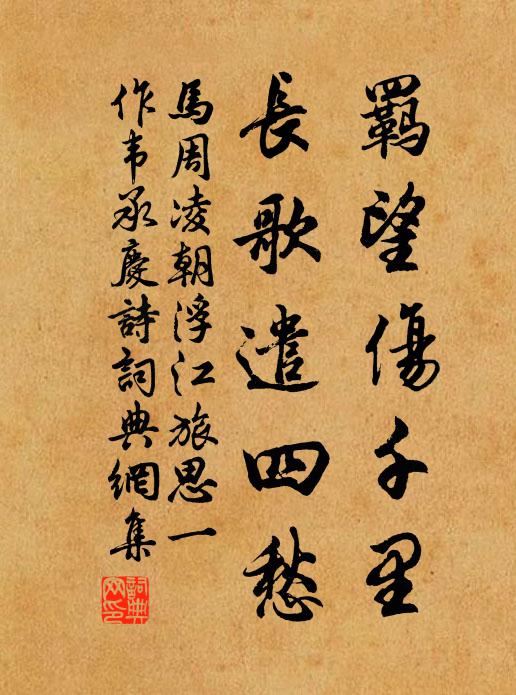 羇望傷千里
長歌遣四愁
馬周凌朝浮江旅思一
作韦承慶詩詞典網集
詞典网印